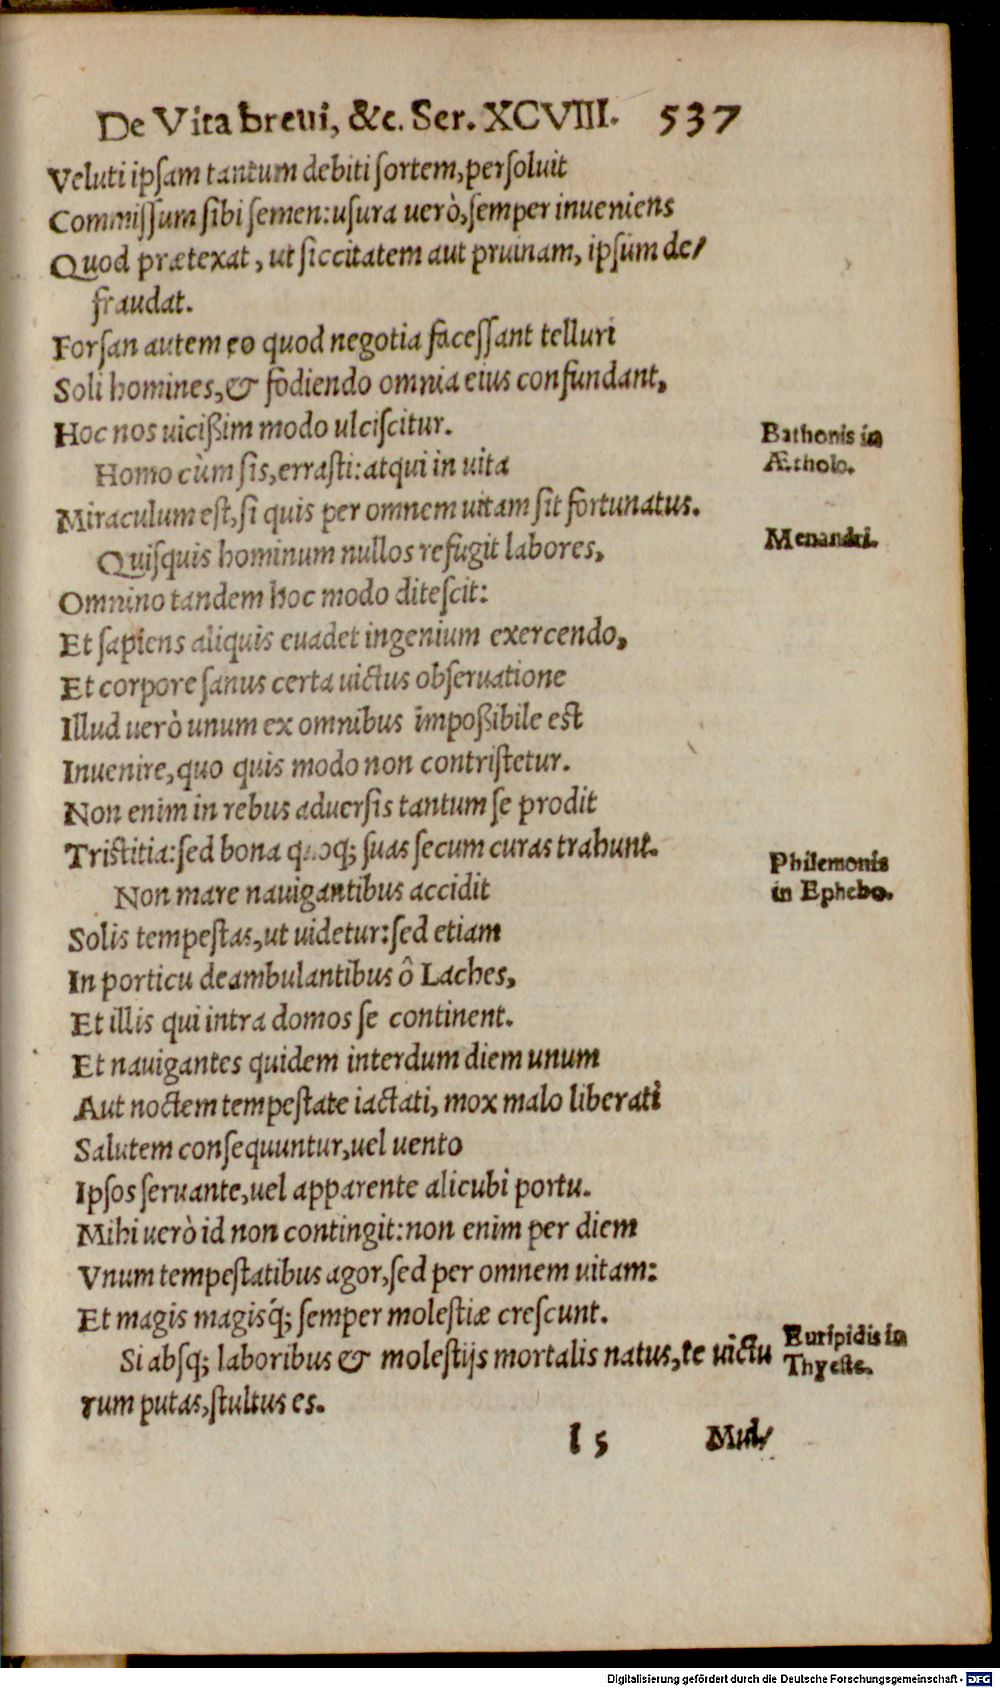 De Vita breui, &c. Ser. XCVIII. 537
Veluti ipſam tantum debiti ſortem, perſoluit
Commiſſum ſibi ſemen: uſura uerò, ſemper inueniens
Quod prætexat, ut ſiccitatem aut pruinam, ipſum de/
fraudat.
Forſan autem eo quod negotia faceſſant telluri
Soli homines, & fodiendo omnia eius confundant,
Hoc nos uicißim modo ulciſcitur.
Homo cùm ſis, errasti: atqui in uita
Bathonis in
Ætholo.
Miraculum est, ſi quis per omnem uitam ſit fortunatus.
Quiſquis hominum nullos refugit labores,
Menandri.
Omnino tandem hoc modo diteſcit:
Et ſapiens aliquis euadet ingenium exercendo,
Et corpore ſanus certa uictus obſeruatione
Illud uerò unum ex omnibus impoßibile est
Inuenire, quo quis modo non contriſtetur.
Non enim in rebus aduerſis tantum ſe prodit
Tristitia: ſed bona quoq; ſuas ſecum curas trahunt.
Non mare nauigantibus accidit
Philemonis
in Ephebo.
Solis tempeſtas, ut uidetur: ſed etiam
In porticu deambulantibus ô Laches,
Et illis qui intra domos ſe continent.
Et nauigantes quidem interdum diem unum
Aut noctem tempeſtate iactati, mox malo liberati
Salutem conſequuntur, uel uento
Ipſos ſeruante, uel apparente alicubi portu.
Mihi uerò id non contingit: non enim per diem
Vnum tempeſtatibus agor, ſed per omnem uitam:
Et magis magisq́; ſemper moleſtiæ creſcunt.
Si absq; laboribus & moleſtijs mortalis natus, te uictu
Euripidis in
Thyeste.
rum putas, ſtultus es.
I 5 Mul/
Digitalisierung gefördert durch die Deutsche Forschungsgemeinschaft - DFG